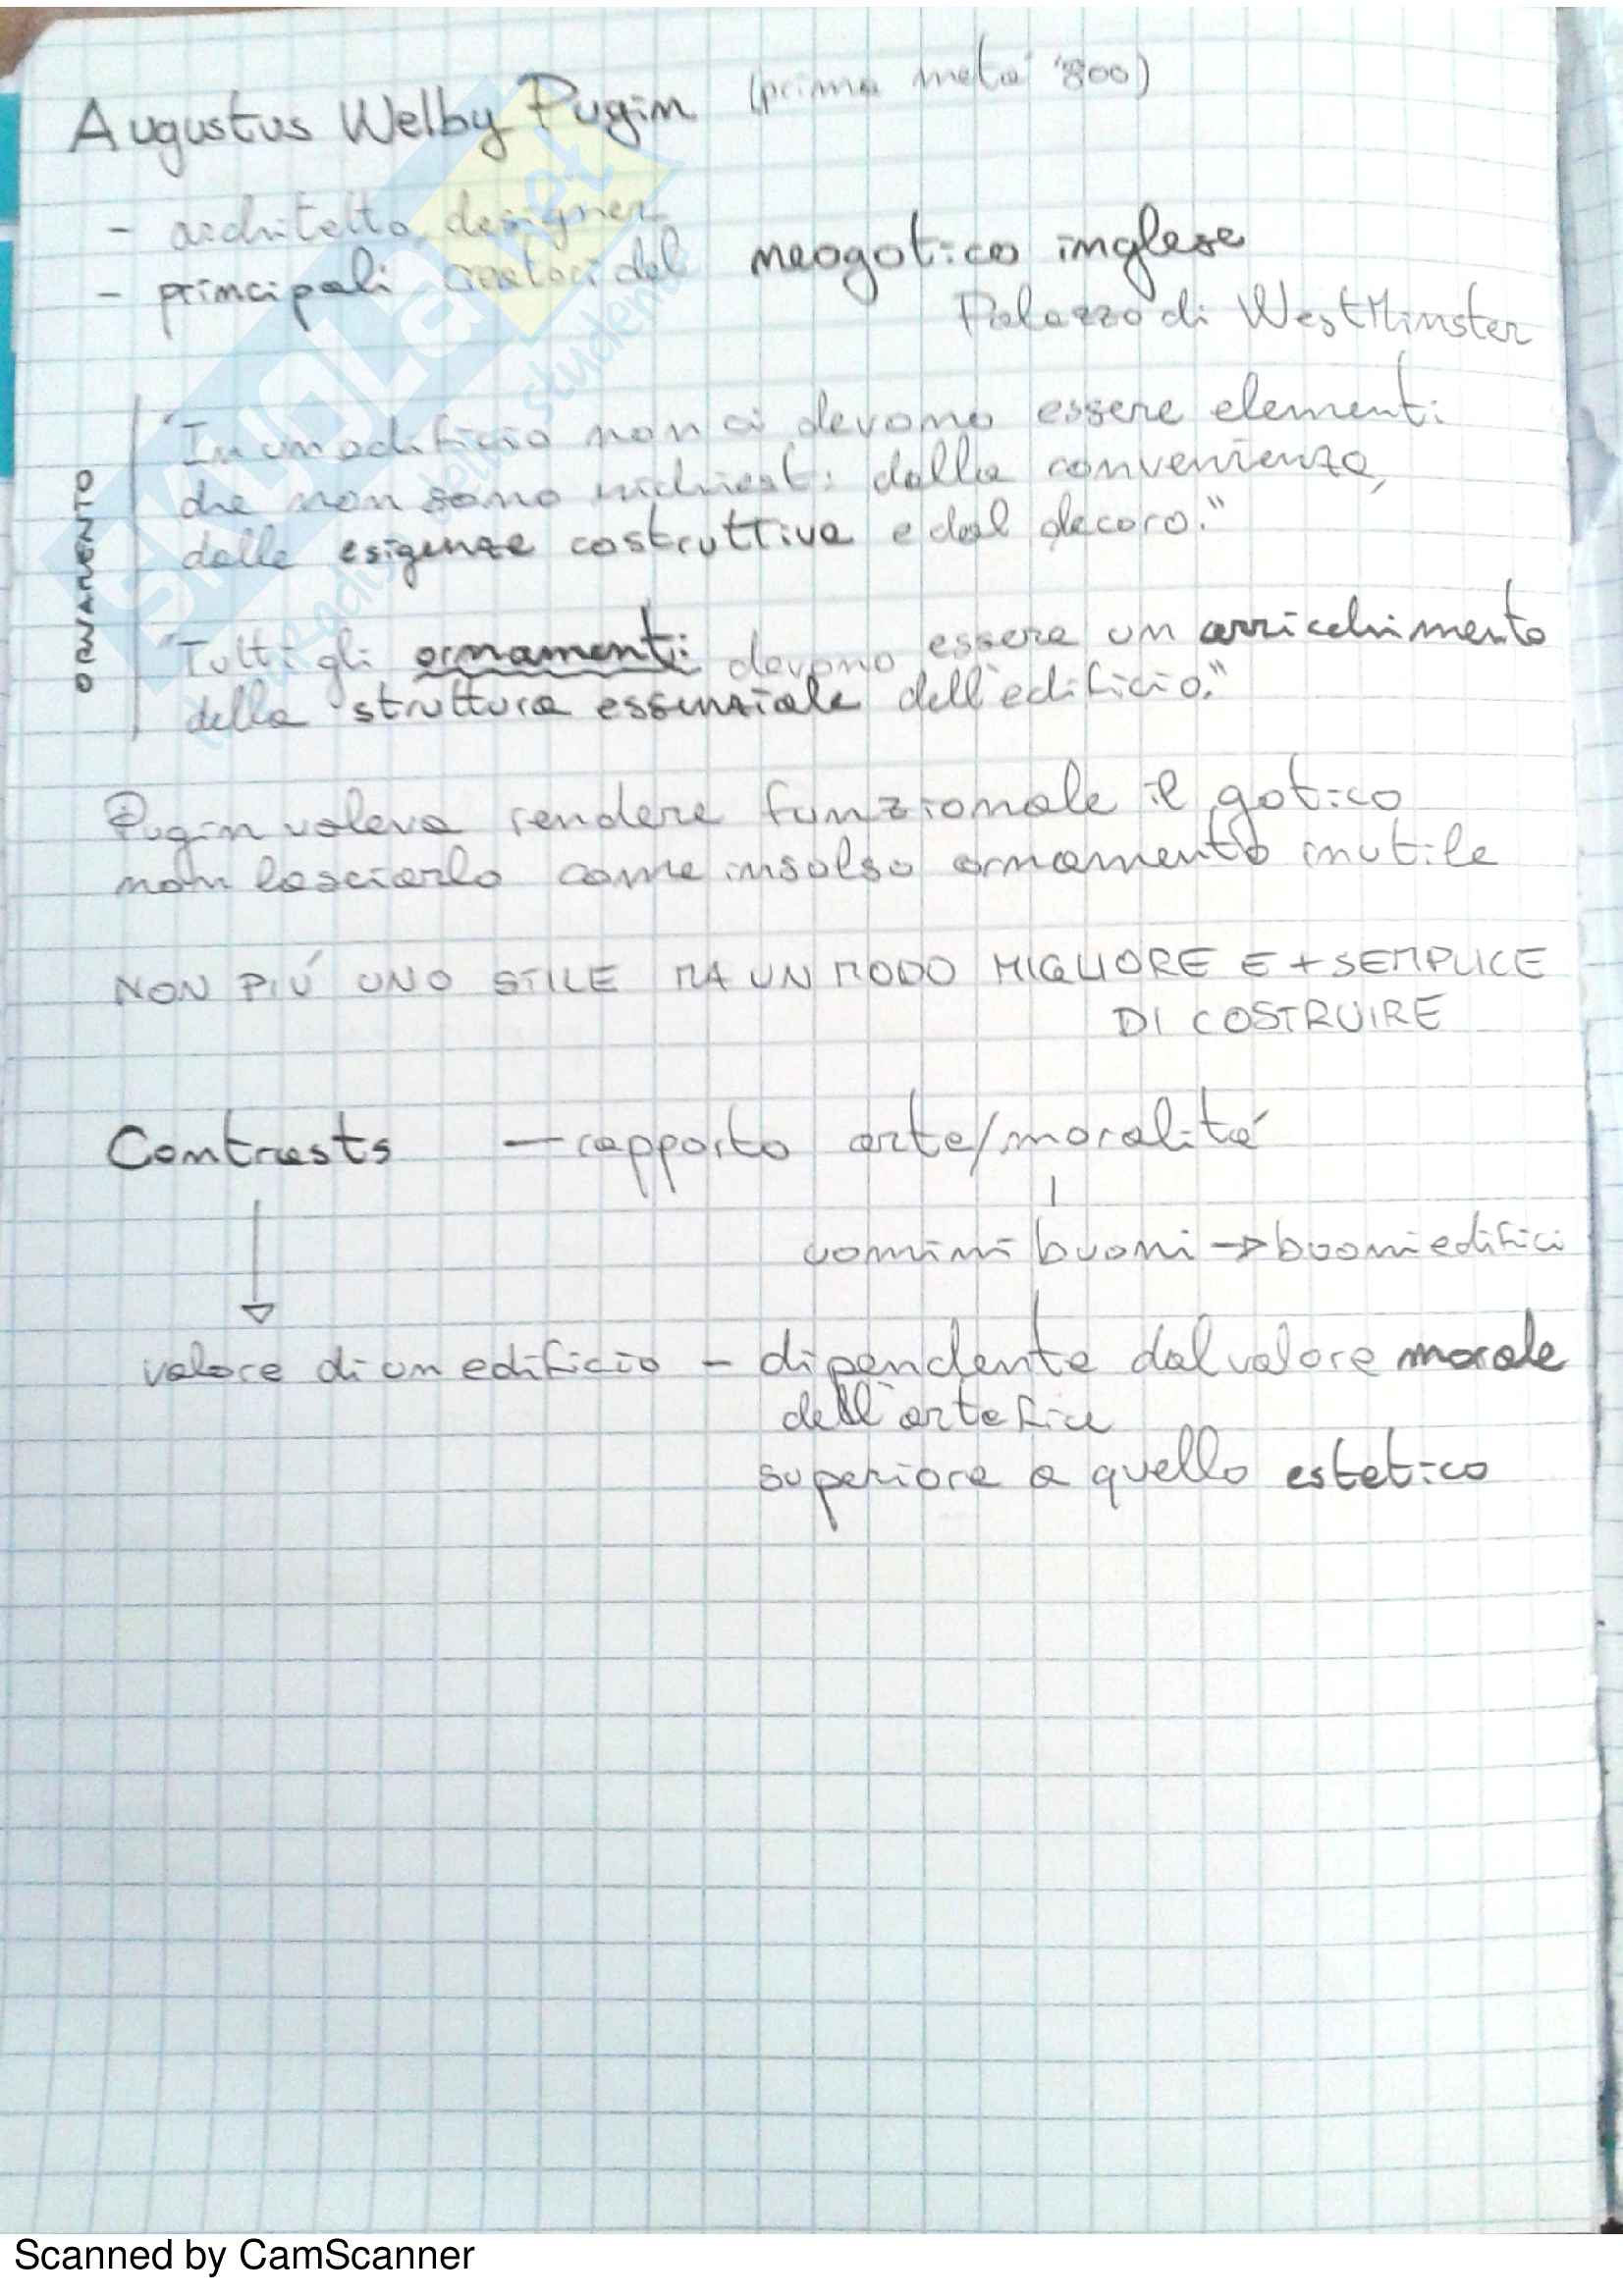 Augustus Welby Pugin (prima metà '800)
- architetto, designer
- principali creatori del neogotico inglese
Palazzo di WestMinster
ORNAMENTO
"In un edificio non ci devono essere elementi
che non sono richiesti dalla convenienza,
dalle esigenze costruttive e dal decoro."
"Tutti gli ornamenti devono essere un arricchimento
della struttura essenziale dell'edificio."
Pugin voleva rendere funzionale il gotico
non lasciarlo come insolso ornamento inutile
NON PIÚ UNO STILE MA UN MODO MIGLIORE E + SEMPLICE
DI COSTRUIRE
Contrasts — rapporto arte/moralitá
uomini buoni → buoni edifici
valore di un edificio - dipendente dal valore morale
dell'artefice
superiore a quello estetico
SKUOLA.net
Scanned by CamScanner